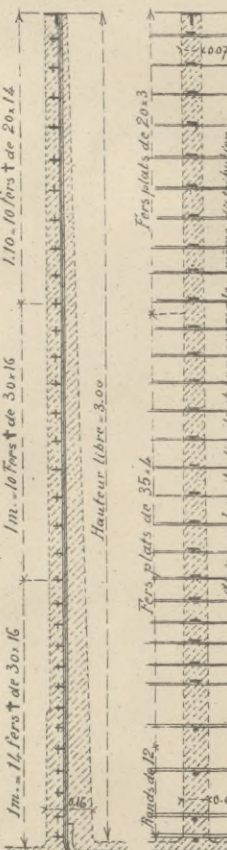 1.10 - 10 fers † de 20 x 14
1m. = 10 Fers † de 30 x 16
1m. = 14 fers † de 30 x 16
Hauteur libre = 3.00
0.16
0.07
Fers plats de 20 x 3
Fers plats de 35 x 4
Ronds de 12